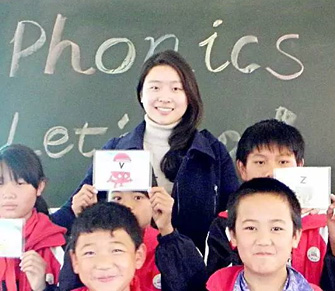 Phonics
Let's
V
Z